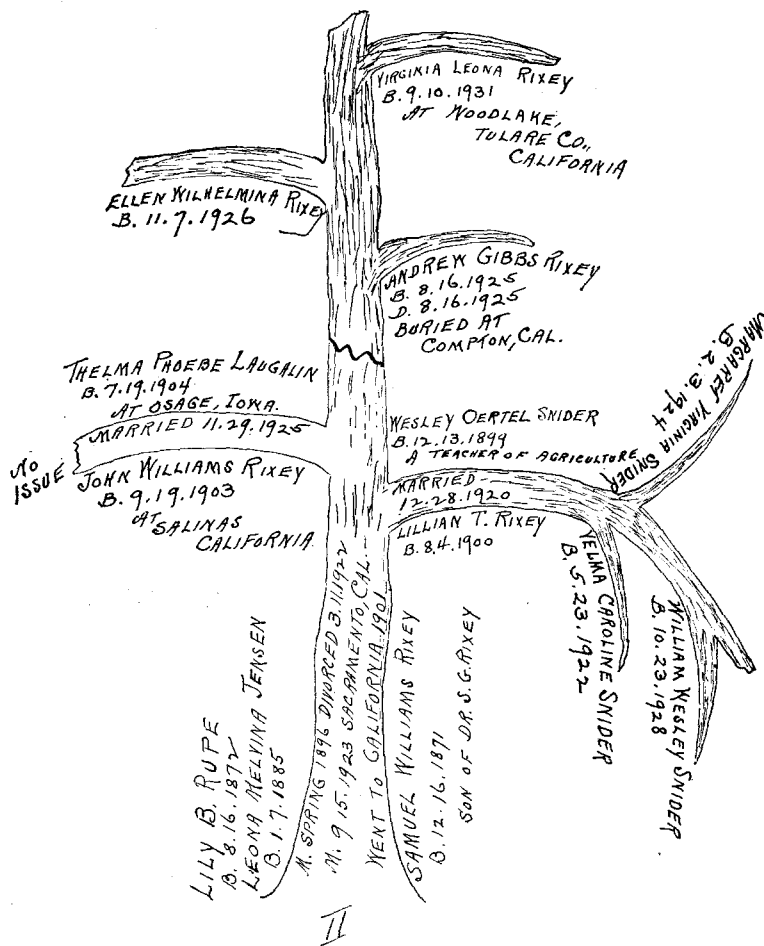 VIRGINIA LEONA RIXEY
B. 9. 10. 1931
AT WOODLAKE,
TULARE CO.,
CALIFORNIA
ELLEN WILHELMINA RIXEY
B. 11. 7. 1926
ANDREW GIBBS RIXEY
B. 8. 16. 1925
D. 8. 16. 1925
BURIED AT
COMPTON, CAL.
THELMA PHOEBE LAUGALIN
B. 7. 19. 1904
AT OSAGE, IOWA.
MARRIED 11. 29. 1925
NO
ISSUE
JOHN WILLIAMS RIXEY
B. 9. 19. 1903
AT
SALINAS
CALIFORNIA
WESLEY OERTEL SNIDER
B. 12. 13. 1899
A TEACHER OF AGRICULTURE
MARRIED
12. 28. 1920
LILLIAN T. RIXEY
B. 8. 4. 1900
MARGARET VIRGINIA SNIDER
B. 2. 3. 1924
VELMA CAROLINE SNIDER
B. 5. 23. 1922
WILLIAM WESLEY SNIDER
B. 10. 23. 1928
LILY B. RUPE
B. 8. 16. 1872
LEONA MELVINA JENSEN
B. 1. 7. 1885
M. SPRING 1896 DIVORCED 3. 11. 1922
M. 9 15. 1923 SACRAMENTO, CAL.
WENT TO CALIFORNIA 1901
SAMUEL WILLIAMS RIXEY
B. 12. 16. 1871
SON OF DR. S. G. RIXEY
II